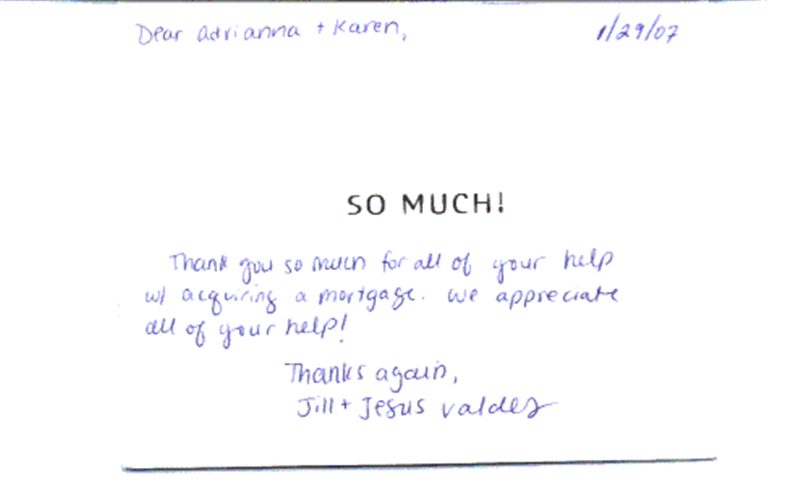 Dear Adrianna + Karen, 1/29/07
SO MUCH!
Thank you so much for all of your help
w/ acquiring a mortgage. We appreciate
all of your help!
Thanks again,
Jill + Jesus Valdez